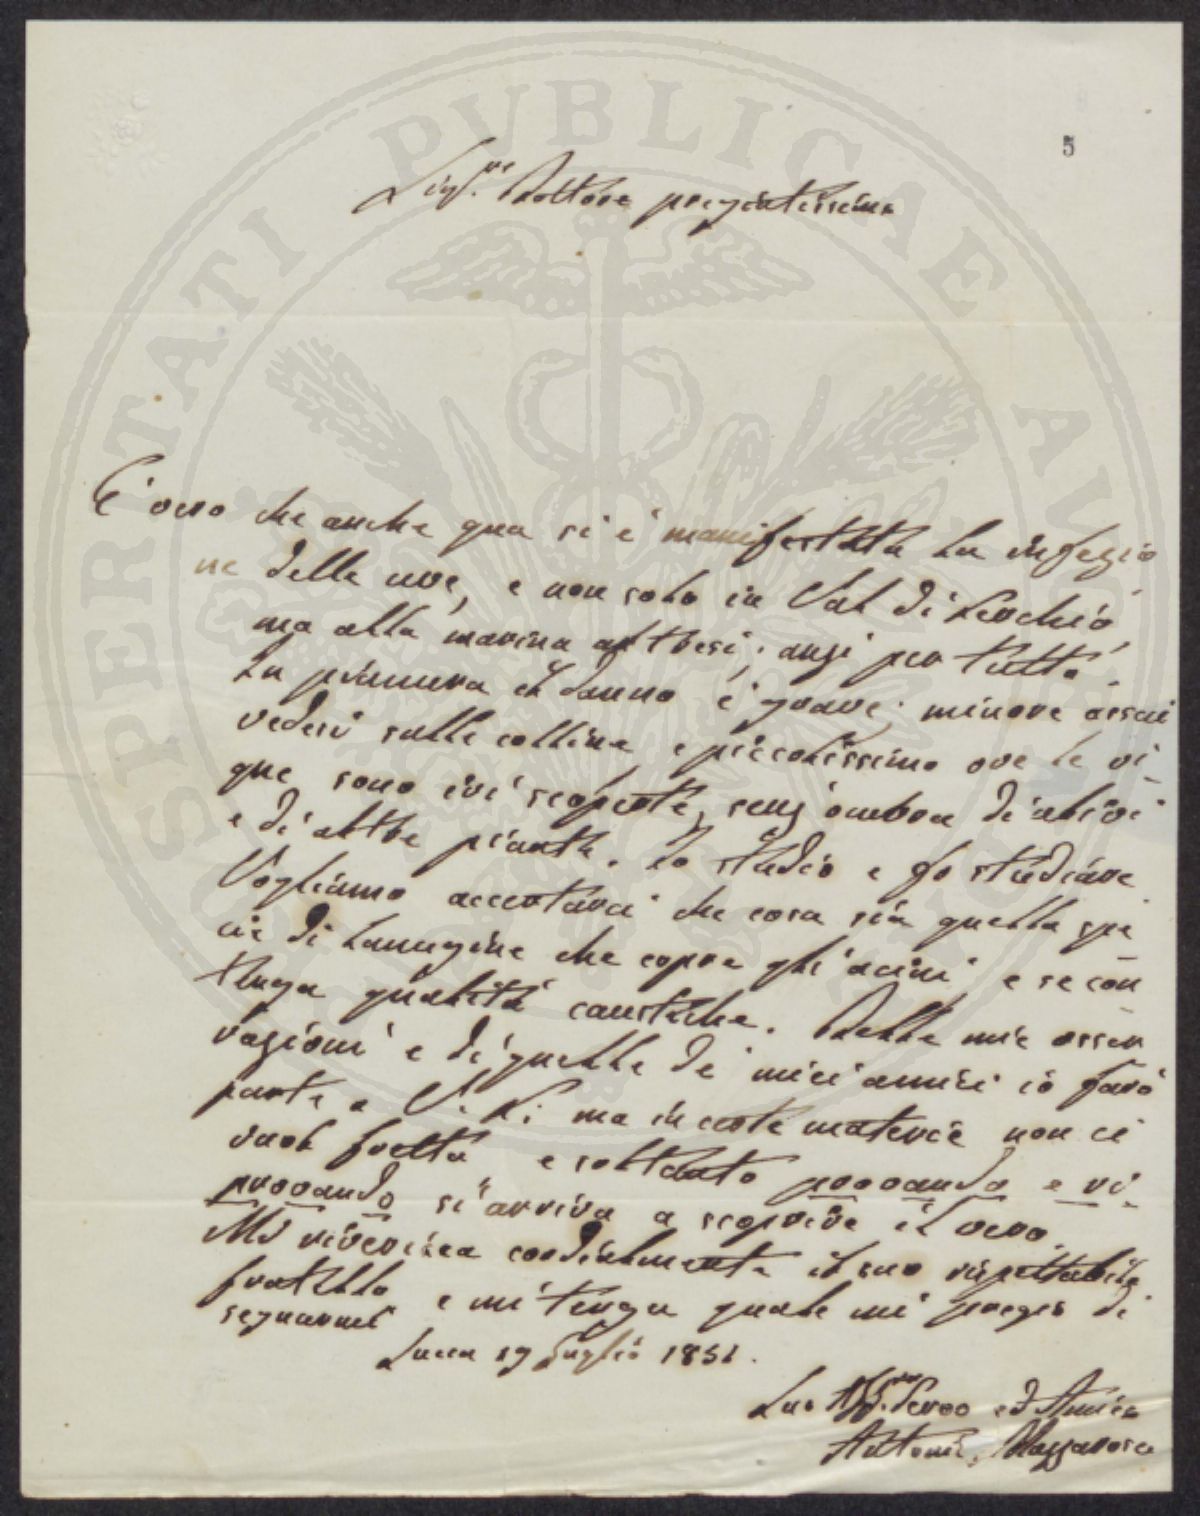 5
Sig.re Dottore pregiatissimo
È vero che anche qua si è manifestata la infezio
ne delle uve, e non solo in Val di Serchio
ma alla marina altresì; anzi per tutto
la pianura il danno è grave; minore assai
vedesi sulle colline e piccolissimo ove le vi
gne sono ivi scoperte, senz'ombra di ulivi
e di altre piante. Io studio e fo studiare
Vogliamo accertarci che cosa sia quella spe
cie di lanugine che copre gli acini e se con
tenga qualità caustiche. Delle mie osser
vazioni e di quelle di miei amici io farò
parte a V. S. ma in certe materie non ci
vuol fretta e soltanto provando e ri-
provando si arriva a scoprire il vero.
Mi riverisca cordialmente il suo rispettabile
fratello e mi tenga quale mi pregio di
segnarmi
Lucca 19 Luglio 1851.
Suo Aff.mo Servo ed Amico
Antonio Mazzarosa
SPERITATI PUBLICAE AU